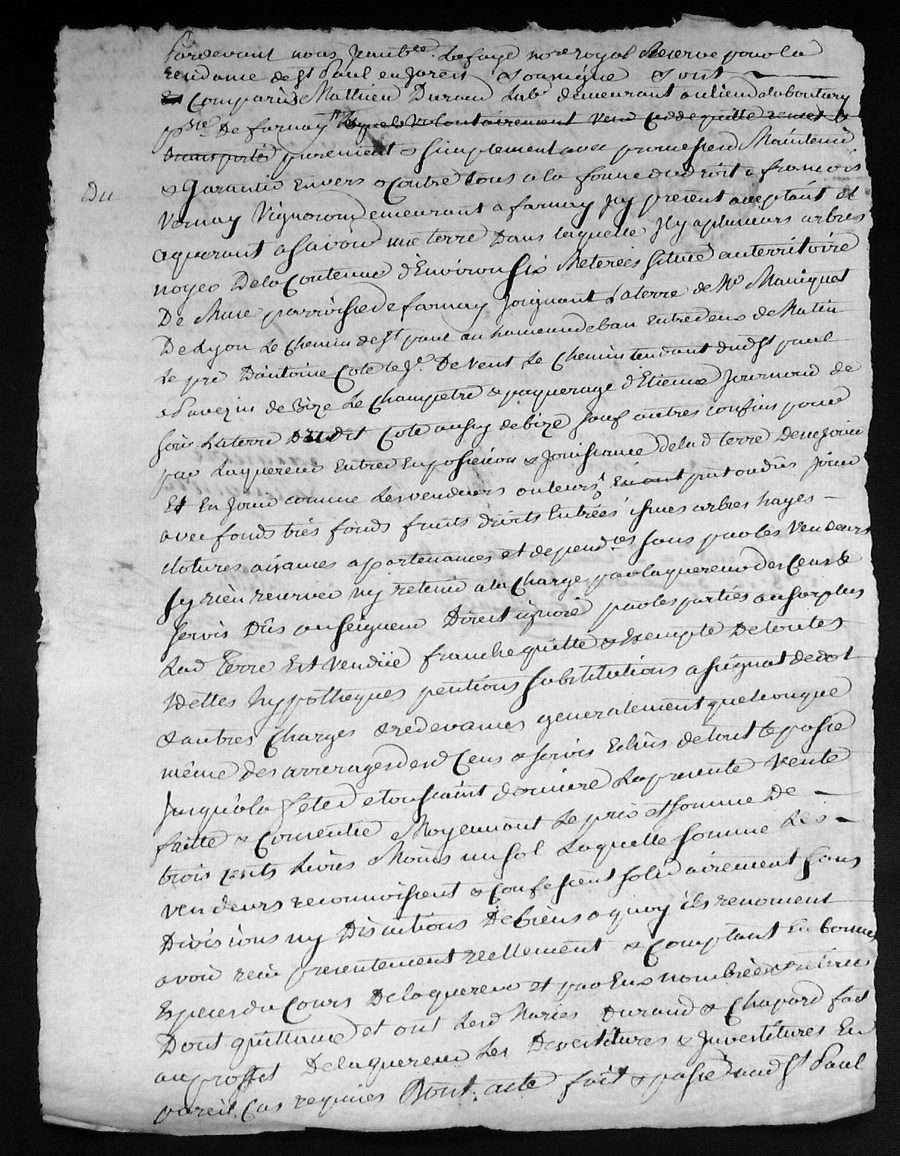 Pardevant nous Jean Lafaye no.re royal Reservé pour la
rendame de St Paul en Jarest soussigné sont
Comparu Mathieu Durand Lab.r demeurant au lieu du boutary
p.sse De farnay Volontairement vend cedde quitte remet &
transporté purement & simplement avec promesse de Maintenir
& Garantir Envers & Contre tous a la forme du droit a françois
Du
Vernay Vigneron demeurant a farnay Jcy present acceptant et
aquerant a sçavoir une terre Dans laquelle Jl y a plusieurs arbres
noyer De la Contenue d'Environ six Meterées située au territoire
De Mure parroisse de farnay Joignant La terre de Mr Maniquet
De Lyon Le Chemin de St paul au hameau de ban Entredeux de Matin
Le pré D'antoine Cote De vent Le Chemin tendant dud St paul
a Pavezin de bize Le Champetre & paquerage d'Etienne Journoud de
soir La terre Dudit Cote aussy de bize sauf autres confins pour
par Laquereur Entrer En possession & Jouissance de la d terre
Et En Jouir comme Les vendeurs ou leurs En ont pu ou dû Jouir
avec fonds très fonds fruits droits Entrées issues arbres hayes
clotures aisances apartenances et depend.ces sans par les Vendeurs
sy rien reserver ny retenir a la Charge par laquereur des Cens &
servis Dûs au seigneur Direct ignoré par les parties au surplus
Lad terre Est Vendüe franche quitte & Exempte De toutes
Dettes hypotheques pentions substitutions assignat de dot
& autres Charges & redevances generalement quelconque
même des arrerages desd Cens & servis Echûs de tout le passé
Jusqu'a la fete de toussaint derniere La presente Vente
faitte & Consentie Moyennant Le prix et somme De
trois cents Livres Moins un sol Laquelle somme Les
vendeurs reconnoissent & Confessent solidairement sans
Divisions ny Discutions De biens a quoy ils renoncent
avoir reçu presentement reellement & Comptant En bonnes
Especes du Cours De laquereur et par Eux nombrée & retirée
Dont quittance et ont Lesd Mariés Durand & Chapard fait
au proffit De laquereur Les Devestitures & Jnvestitures En
pareil Cas requises Dont acte fait & passé aud St Paul